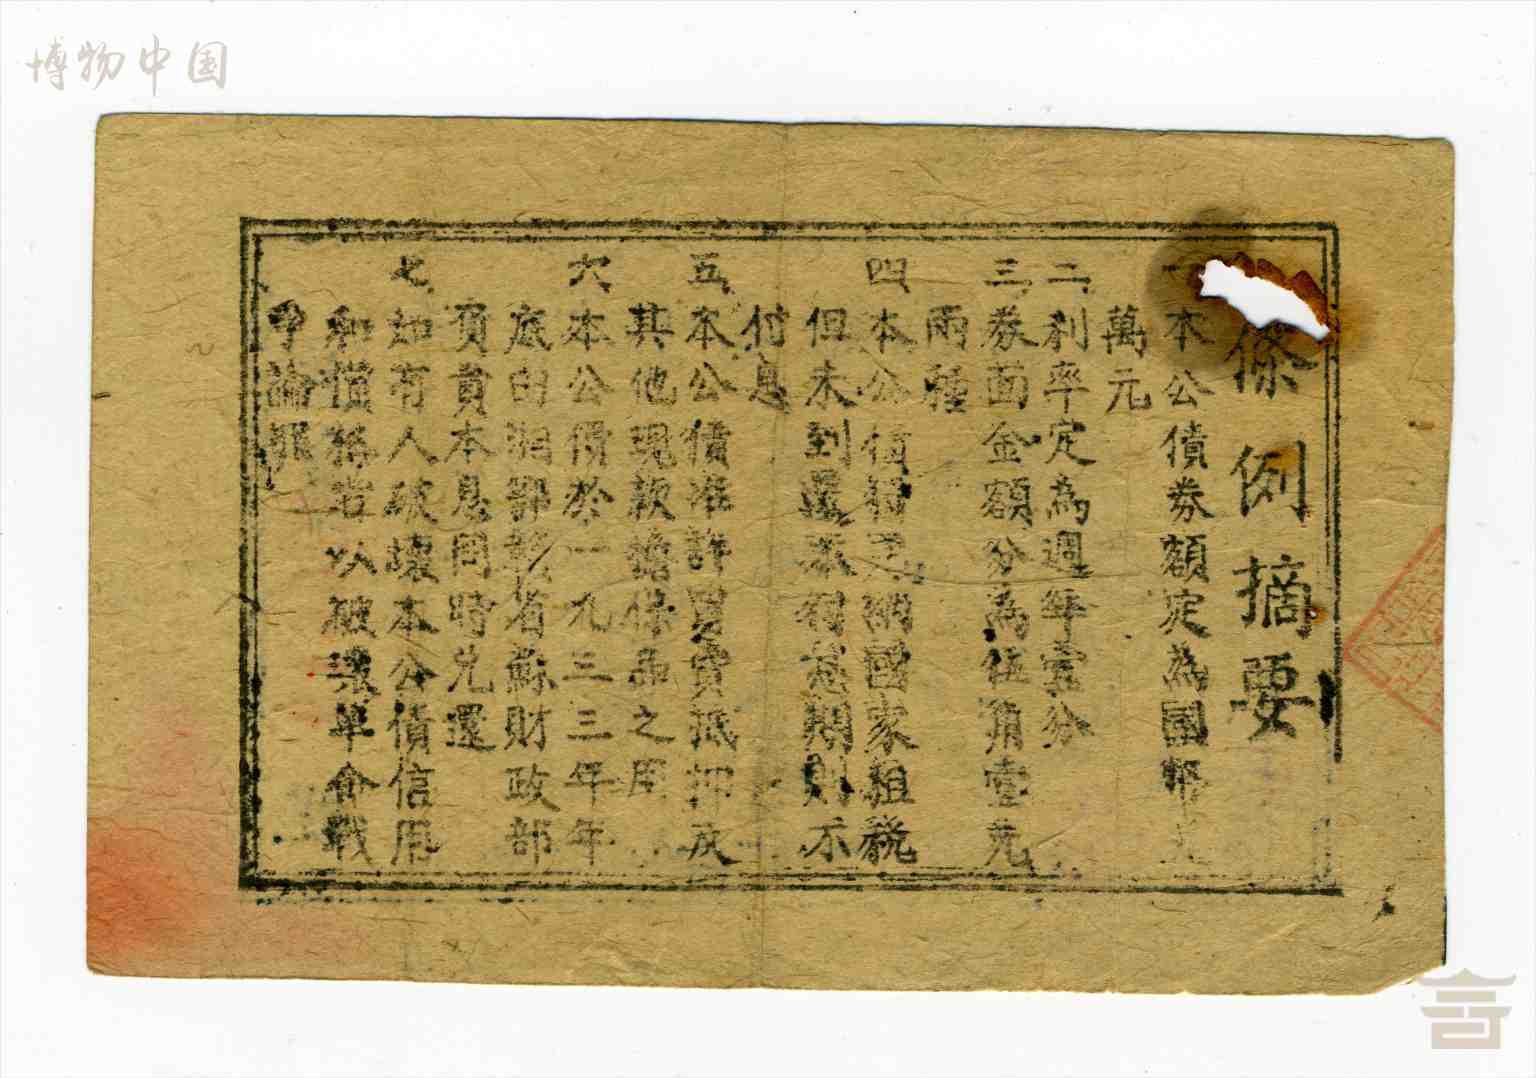 博物中国
條例摘要
一 本公債券額定為國幣
萬元
二 利率定為週年壹分
三 券面金額分為伍角壹元
兩種
四 本公債納國家租稅
但未到還本利息期則不
付息
五 本公債准許買賣抵押及
其他現款擔保品之用
六 本公債於一九三三年年
底由湘鄂省蘇財政部
負責本息同時兌還
七 如有人破壞本公債信用
和價格者以破壞革命戰
爭論罪